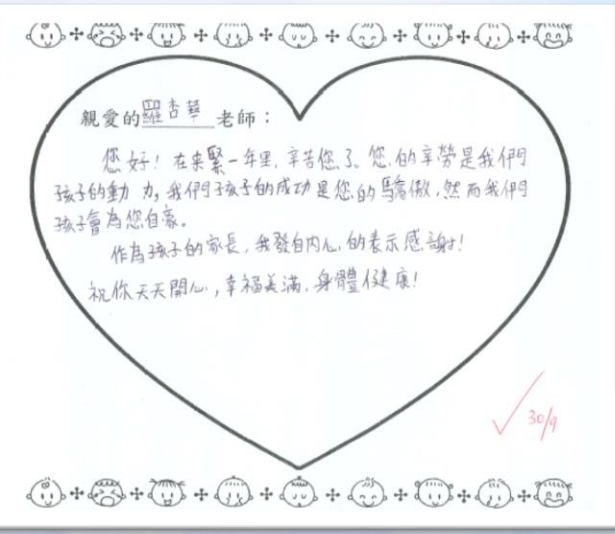 親愛的羅杏華老師：
您好！在來緊一年里，辛苦您了、您的辛勞是我們
孩子的動力，我們孩子的成功是您的驕傲，然而我們
孩子會為您自豪。
作為孩子的家長，我發自内心的表示感謝！
祝你天天開心，幸福美滿，身體健康！
30/9